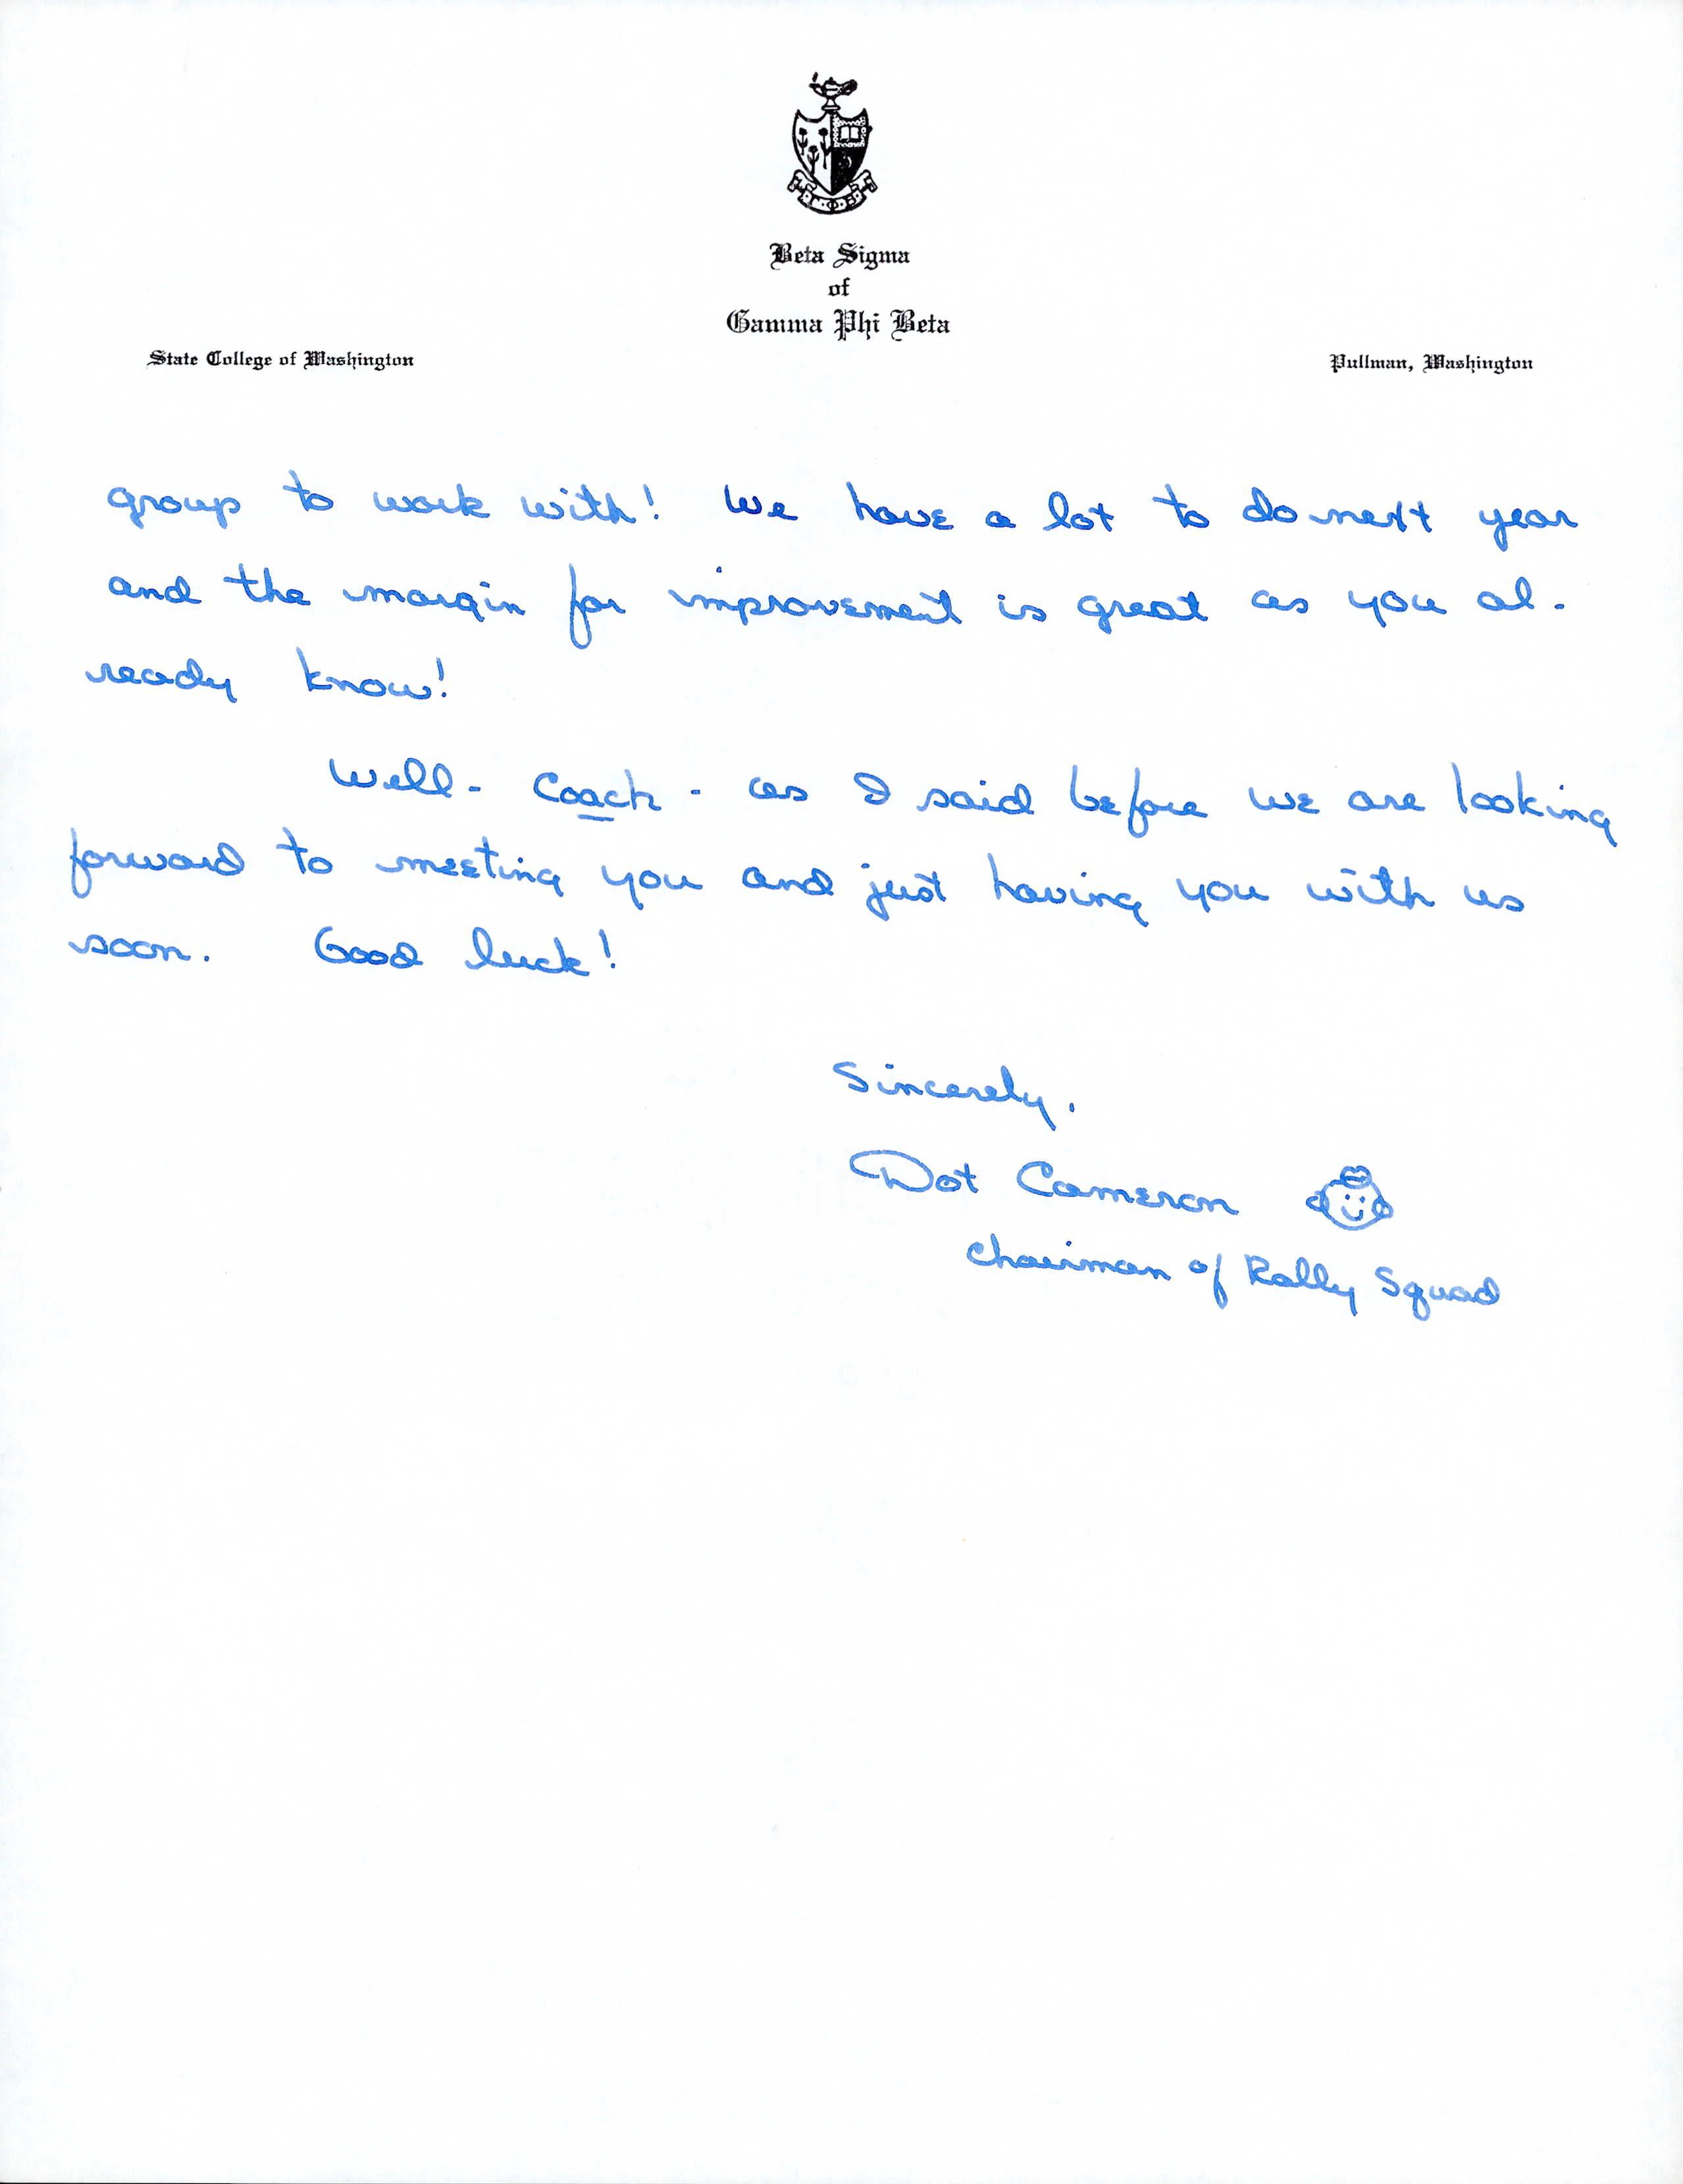 Γ·Φ·Β
Beta Sigma
of
Gamma Phi Beta
State College of Washington
Pullman, Washington
group to work with! We have a lot to do next year
and the margin for improvement is great as you al-
ready know!
Well - Coach - as I said before we are looking
forward to meeting you and just having you with us
soon. Good luck!
Sincerely,
Dot Cameron
Chairman of Rally Squad